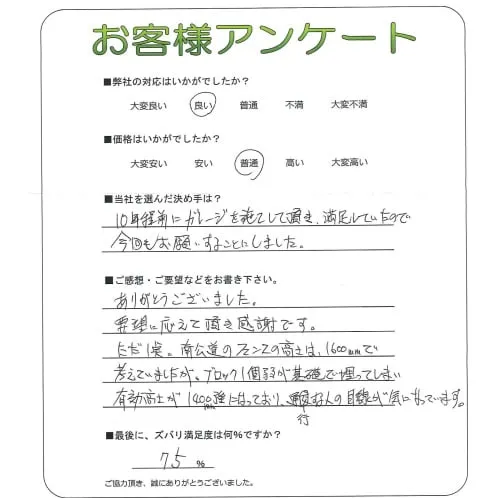 お客様アンケート
■弊社の対応はいかがでしたか？
大変良い 良い 普通 不満 大変不満
■価格はいかがでしたか？
大変安い 安い 普通 高い 大変高い
■当社を選んだ決め手は？
10年程前にガレージを施工して頂き、満足していたので
今回もお願いすることにしました。
■ご感想・ご要望などをお書き下さい。
ありがとうございました。
要望に応えて頂き感謝です。
ただ1点。南公道のフェンスの高さは、1600mmで
考えていましたが、ブロック1個弱が基礎で埋ってしまい
有効高さが1400強になっており、通行人の目線が気になっています。
■最後に、ズバリ満足度は何%ですか？
75 %
ご協力頂き、誠にありがとうございました。